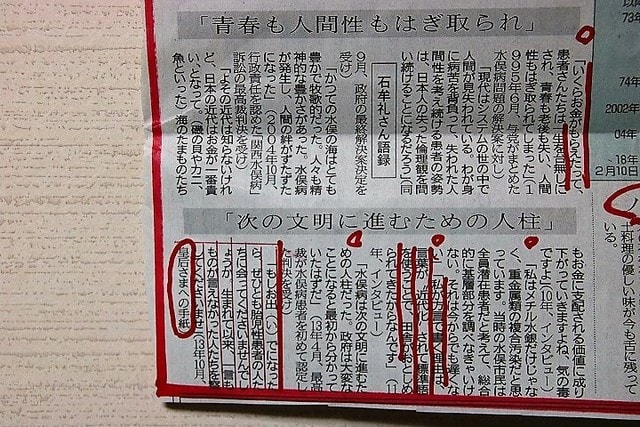 「青春も人間性もはぎ取られ」
「いくらお金がもらえたって、
患者さんたちは一生を台無しに
され、青春も老後も失い、人間
性もはぎ取られてしまった」(1
995年6月、与党がまとめた
水俣病問題の解決案に対し)
「現代はシステムの世の中で
人間が見失われている。わが身
に病苦を背負って、失われた人
間性を考え続ける患者の姿勢
は、日本人の失った倫理観を問
い続けることになるだろう」(同
石牟礼さん語録
9月、政府の最終解決案決定を
受け)
「かつての水俣の海はとても
豊かで牧歌的だった。人々も精
神的な豊かさがあった。水俣病
が発生し、人間の絆がずたずた
になった」(2004年10月、
行政責任を認めた「関西水俣病」
訴訟の最高裁判決を受け)
「よその近代は知らないけれ
ど、日本の近代はお金が一番貴
い、となって、磯の貝やカニ、
魚といった」海のたまものたち
「次の文明に進むための人柱」
もお金に支配される価値に成り
下がっていきますよね、気の毒
ですよ」(10年、インタビュー)
「私はメチル水銀だけじゃな
く、重金属類の複合汚染だと思
っています。当時の水俣市民は
全員潜在患者だと考えて、総合
的に基層部分を調べなきゃいけ
ない。それは今からでも遅くな
い」「私が方言で書く理由は、
言葉が近代化されて標準語
を使うことで、田舎がおとしめ
られてきたからなんです」(11
年、インタビュー)
「水俣病は次の文明に進むた
めの人柱だった。政府は大変な
ことになると最初から分かって
いたはずだ」(13年4月、最高
裁が水俣病患者を初めて認定し
た判決を受け)
「もしお出(い)でになった
ら、ぜひとも胎児性患者の人た
ちに会ってくださいませんでし
ょうか。生まれて以来、一言も
ものが言えなかった人たちを察
してくださいませ」(13年10月、
皇后さまへの手紙)
74年
2002年
04年
~18年
2月10日
士料理の優しい味が今も舌に残って
いる。